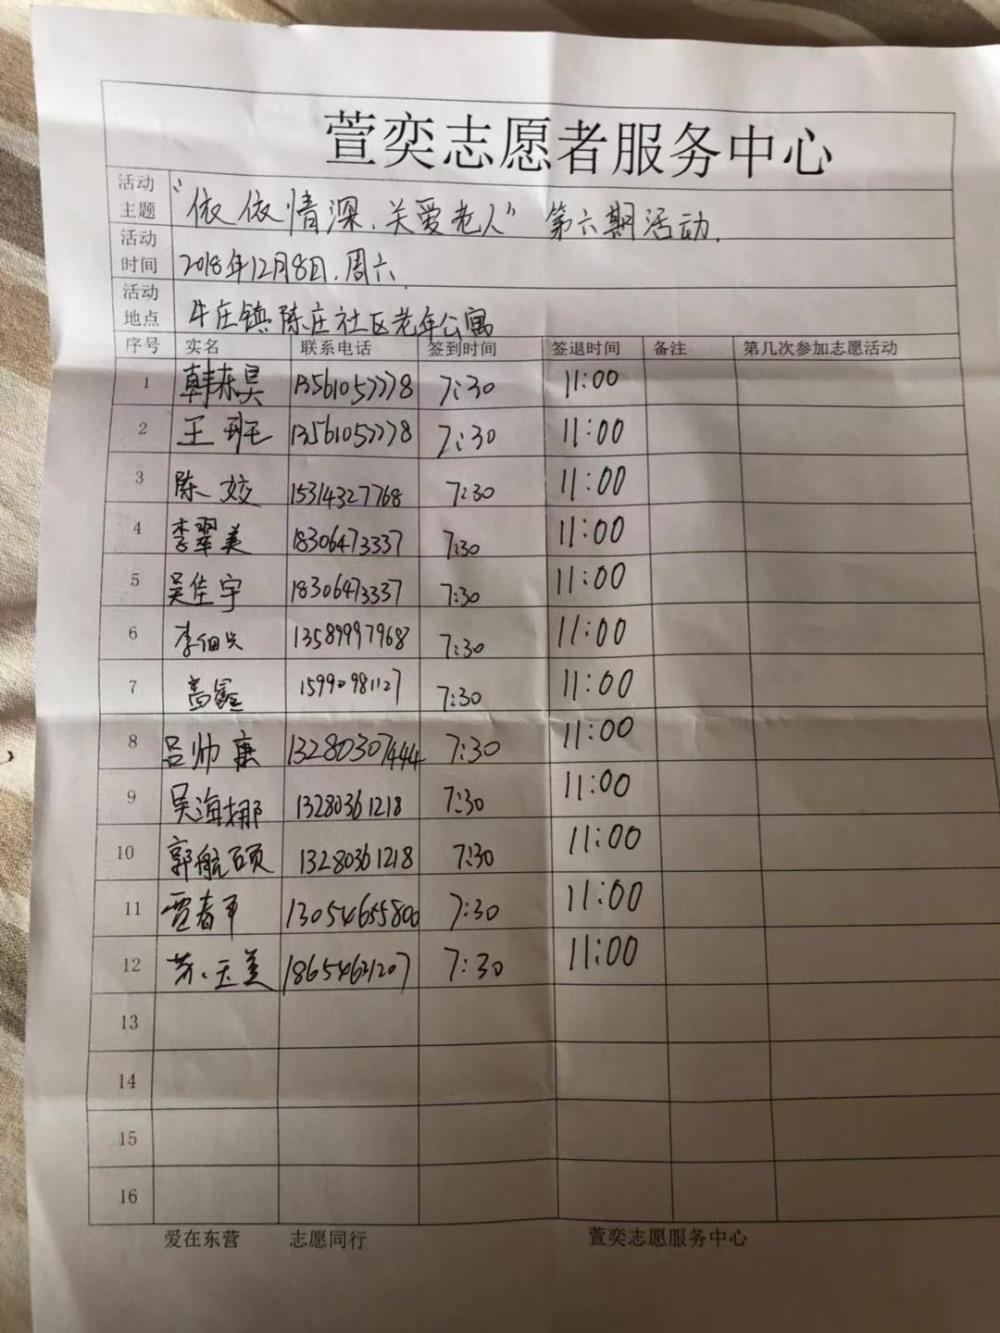 萱奕志愿者服务中心
活动主题 “依依情深、关爱老人”第六期活动.
活动时间 2018年12月8日.周六.
活动地点 牛庄镇陈庄社区老年公寓
序号 实名 联系电话 签到时间 签退时间 备注 第几次参加志愿活动
1 韩东昊 13561057778 7:30 11:00
2 王班 13561057778 7:30 11:00
3 陈姣 15314327768 7:30 11:00
4 李翠美 18306473337 7:30 11:00
5 吴佳宇 18306473337 7:30 11:00
6 李佃 13589997968 7:30 11:00
7 高鑫 15990981127 7:30 11:00
8 吕帅康 13280307444 7:30 11:00
9 吴海娜 13280361218 7:30 11:00
10 郭航硕 13280361218 7:30 11:00
11 贾春 13054655800 7:30 11:00
12 玉美 18654621207 7:30 11:00
13
14
15
16
爱在东营 志愿同行 萱奕志愿服务中心